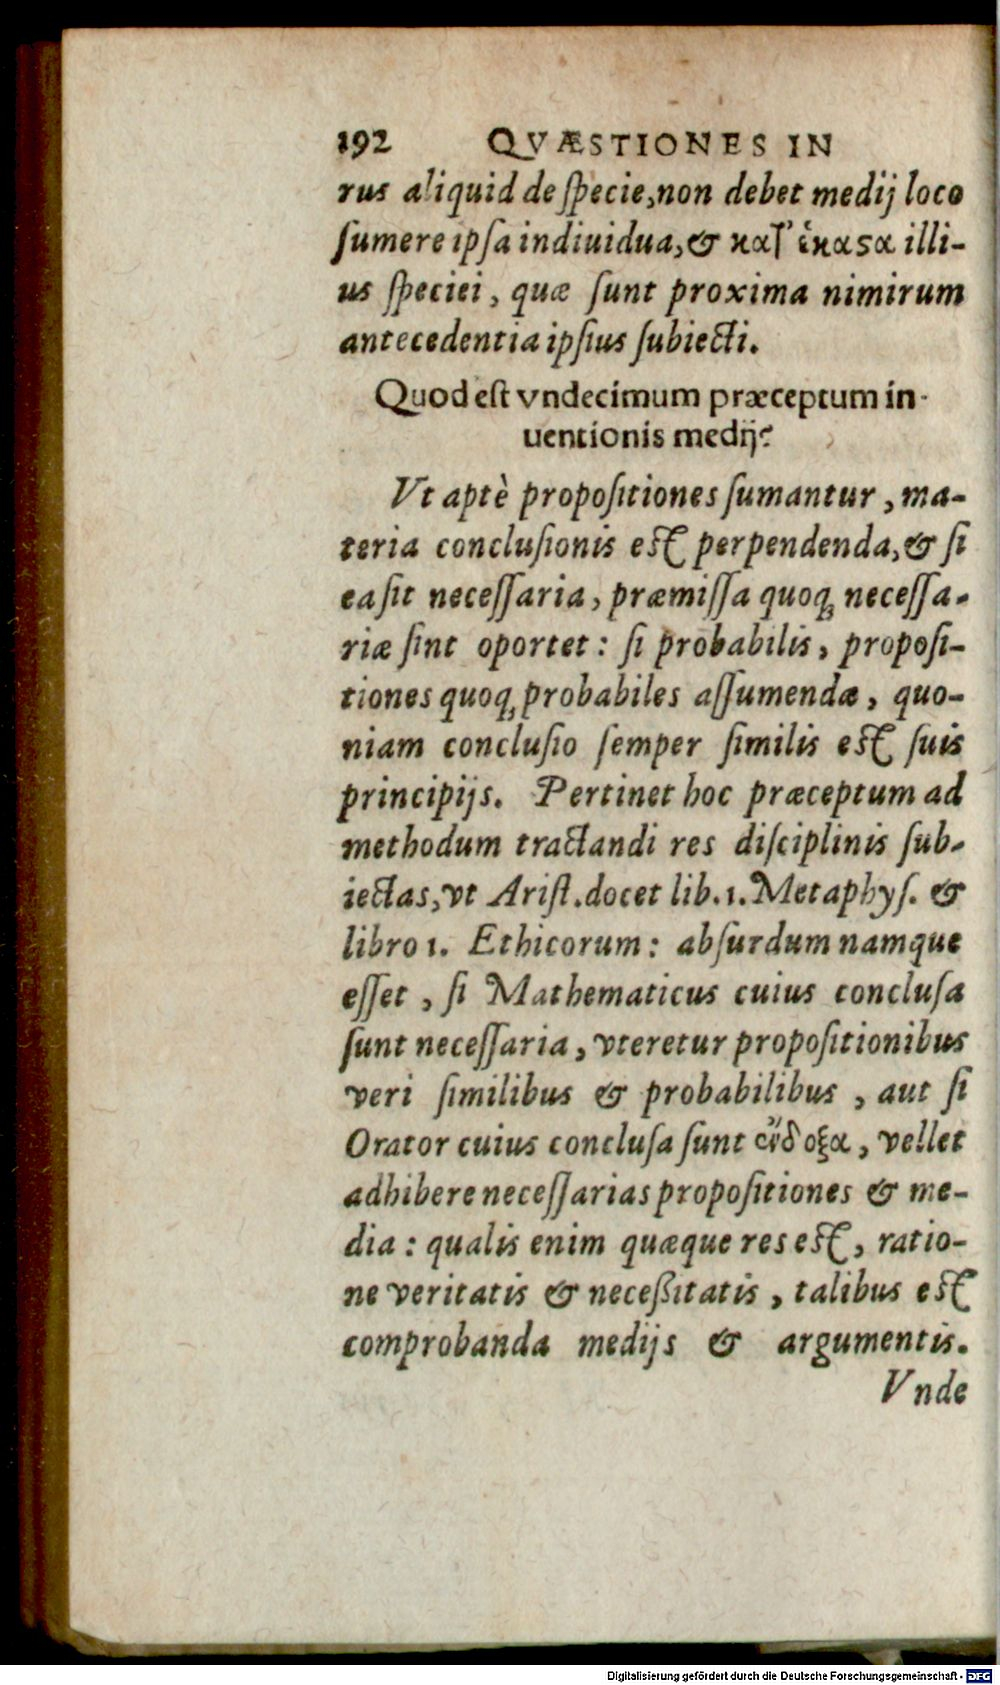 192 QVÆSTIONES IN
rus aliquid de ſpecie, non debet medij loco
ſumere ipſa indiuidua, & κατ' ἕκαϛα illi-
us ſpeciei, quæ ſunt proxima nimirum
antecedentia ipſius ſubiecti.
Quod eſt vndecimum præceptum in-
uentionis medij?
Vt aptè propoſitiones ſumantur, ma-
teria concluſionis eſt perpendenda, & ſi
ea ſit neceſſaria, præmiſſa quoq; neceſſa-
riæ ſint oportet: ſi probabilis, propoſi-
tiones quoq; probabiles aſſumendæ, quo-
niam concluſio ſemper ſimilis eſt ſuis
principijs. Pertinet hoc præceptum ad
methodum tractandi res diſciplinis ſub-
iectas, vt Ariſt. docet lib. 1. Metaphyſ. &
libro 1. Ethicorum: abſurdum namque
eſſet, ſi Mathematicus cuius concluſa
ſunt neceſſaria, vteretur propoſitionibus
veri ſimilibus & probabilibus, aut ſi
Orator cuius concluſa ſunt ἔνδοξα, vellet
adhibere neceſſarias propoſitiones & me-
dia: qualis enim quæque res eſt, ratio-
ne veritatis & neceßitatis, talibus eſt
comprobanda medijs & argumentis.
Vnde
Digitalisierung gefördert durch die Deutsche Forschungsgemeinschaft - DFG